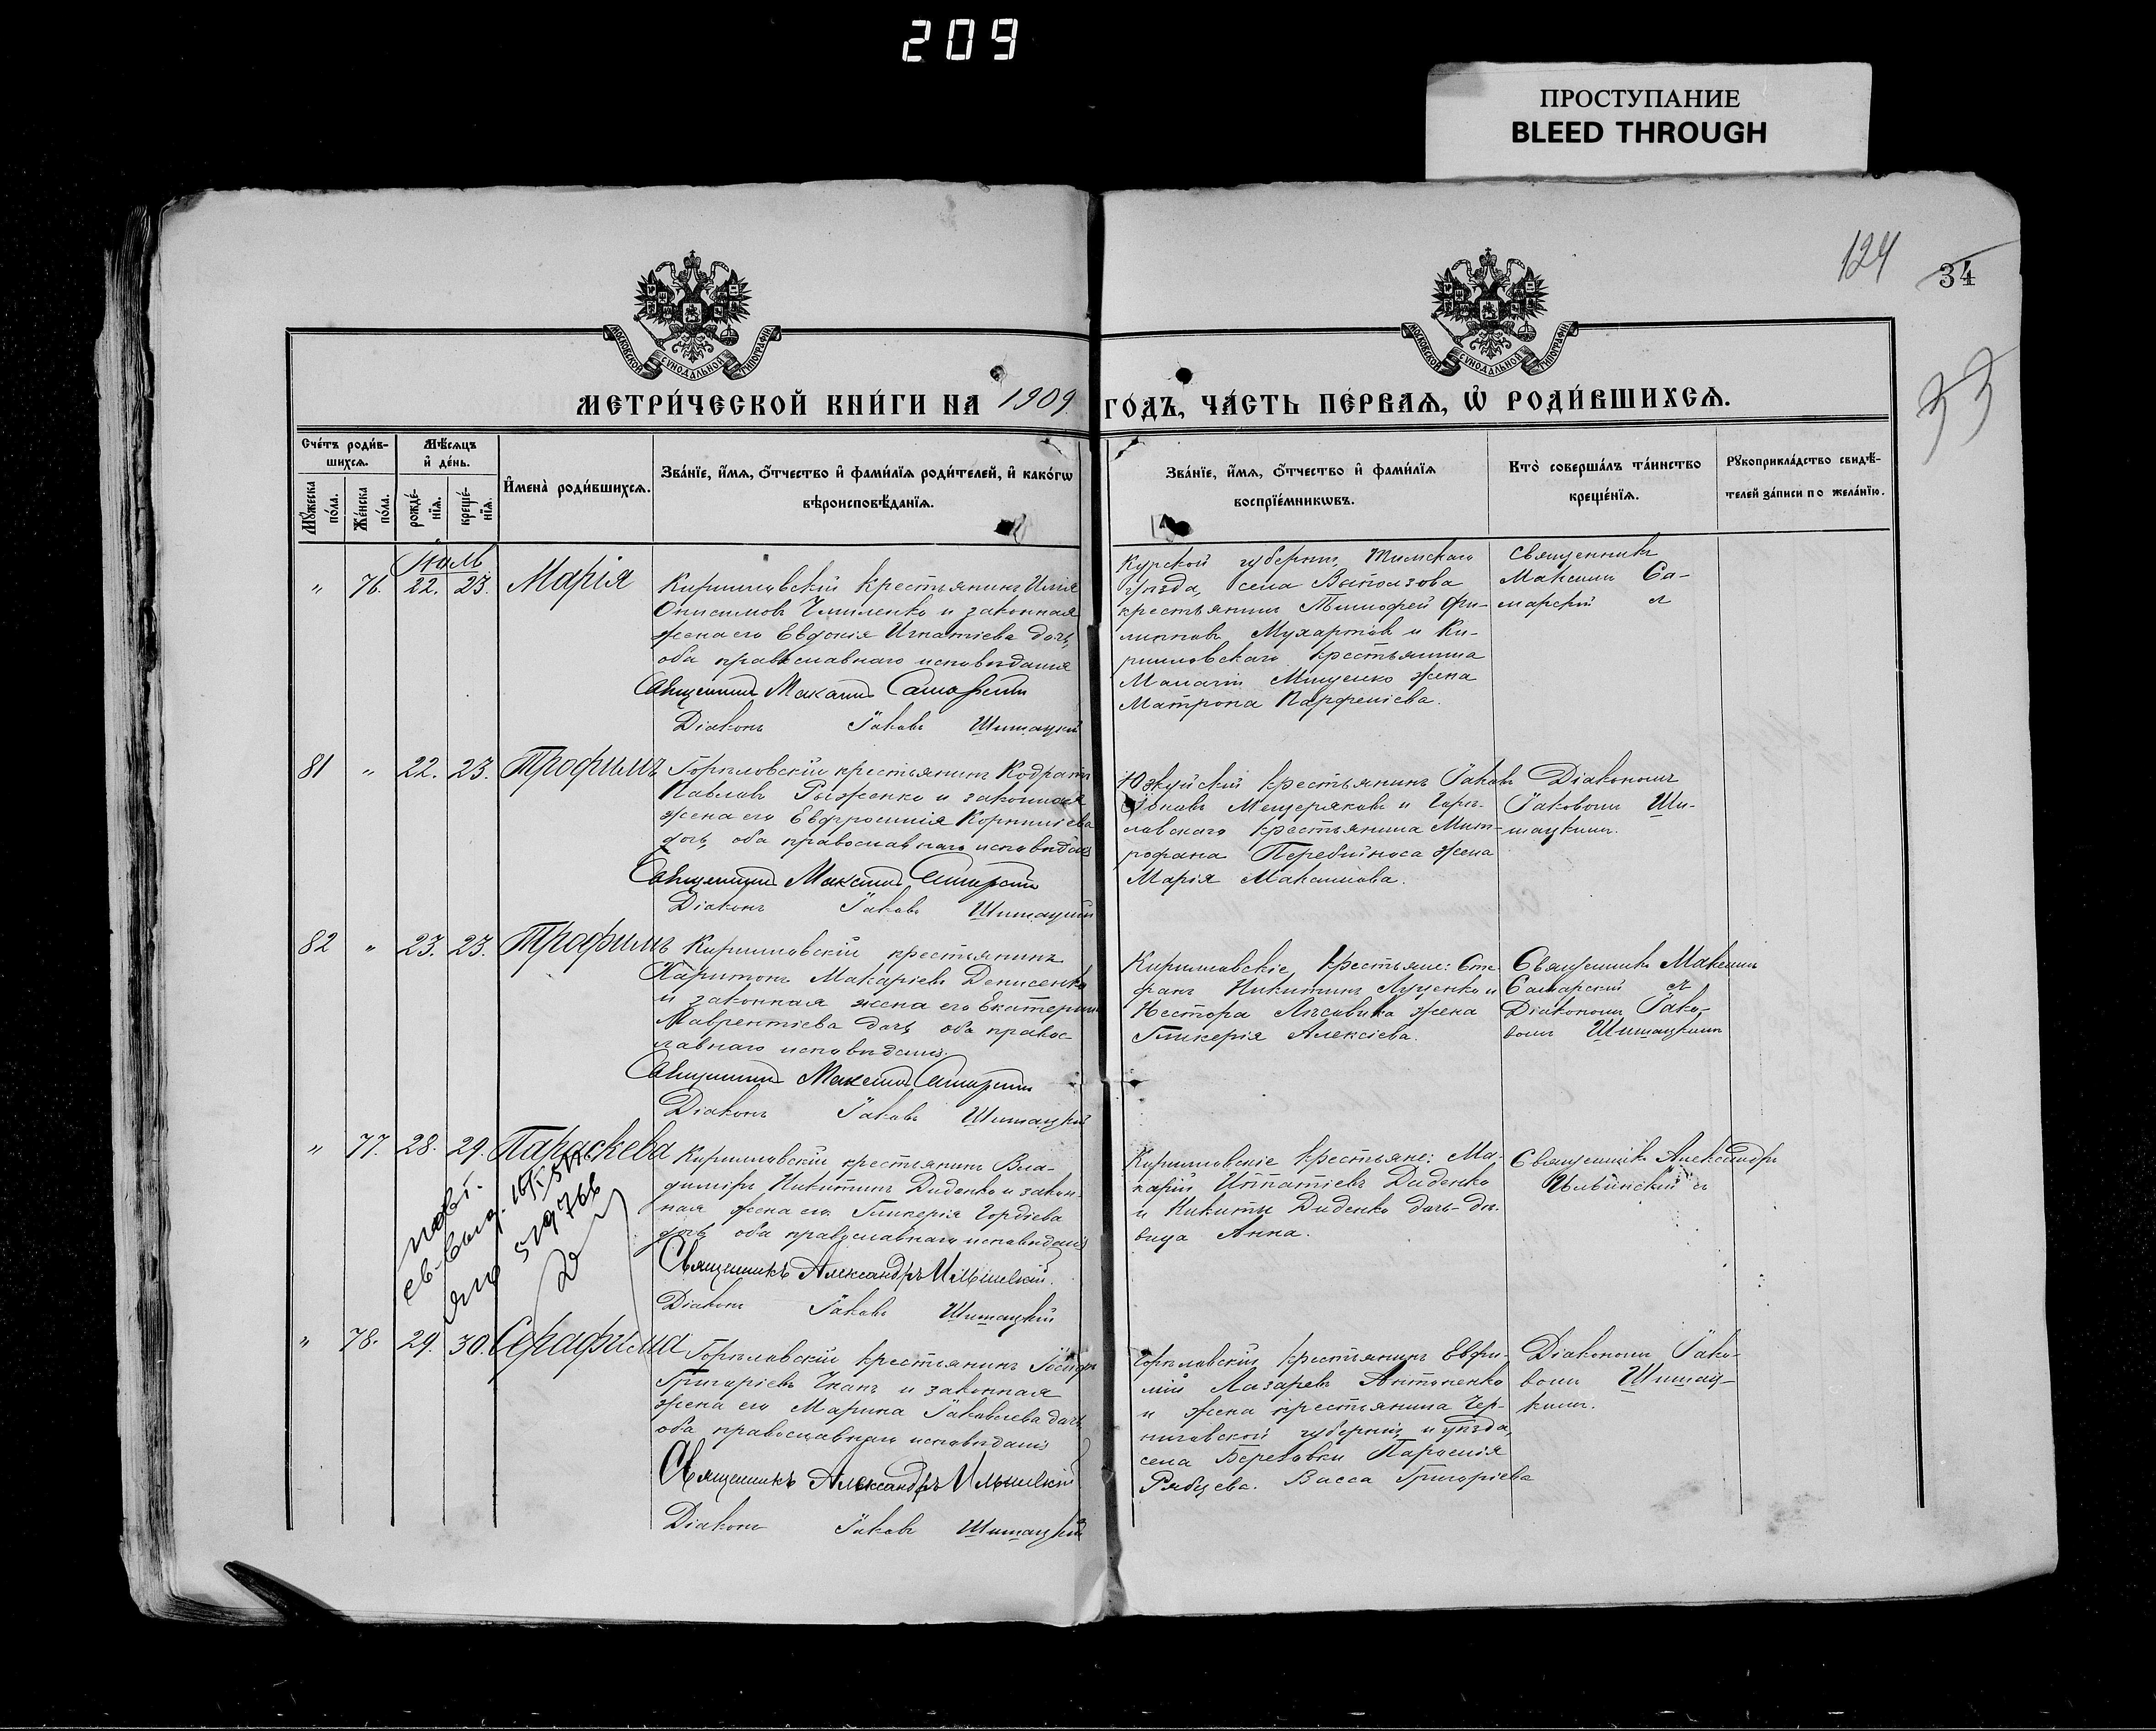 209
ПРОСТУПАНИЕ
BLEED THROUGH
124
34
33
МОСКОВСКОЙ СѴНОДАЛЬНОЙ ТИПОГРАФІИ
МОСКОВСКОЙ СѴНОДАЛЬНОЙ ТИПОГРАФІИ
МЕТРИ́ЧЕСКОЙ КНИ́ГИ НА 1909. ГО́ДЪ, ЧА́СТЬ ПЕ́РВАѦ, Ѡ҆ РОДИ́ВШИХСѦ.
Сче́тъ роди́в-
шихсѧ.
Мꙋ́жеска по́ла.
Же́нска по́ла.
Мѣ́сѧцъ
и҆ де́нь.
рожде́-
нїѧ.
креще́-
нїѧ.
И҆мена̀ роди́вшихсѧ.
Зва́нїе, и҆́мѧ, ѻ҆́тчество и҆ фами́лїѧ роди́телей, и҆ како́гѡ
вѣроисповѣ́данїѧ.
Зва́нїе, и҆́мѧ, ѻ҆́тчество и҆ фами́лїѧ
воспрїе́мникѡвъ.
Кто̀ соверша́лъ та́инство
креще́нїѧ.
Рꙋкоприкла́дство свидѣ́-
телей за́писи по жела́нїю.
Іюль
" 76. 22. 23. Марія
Кирилловскій крестьянинъ Илія
Онисимовъ Чмиленко и законная
жена его Евдокія Игнатіева дочь,
оба православнаго исповѣданія
Священникъ Максимъ Самарскій
Діаконъ Іаковъ Шишацкій
Курской губерніи, Тимскаго
уѣзда, села Выползова
крестьянинъ Тимофей Фи-
липповъ Мухартовъ и Ки-
рилловскаго крестьянина
Мищенко жена
Матрона Парфеніева.
Священникъ
Максимъ Са-
марскій
81 " 22. 23. Трофимъ
Горѣловскій крестьянинъ Кодратъ
Павловъ Рыженко и законная
жена его Евфросинія Корниліева
дочь, оба православнаго исповѣданія
Священникъ Максимъ Самарскій
Діаконъ Іаковъ Шишацкій
Юзкуйскій крестьянинъ Іаковъ
Іоновъ Мещеряковъ и Горѣ-
ловскаго крестьянина Мит-
рофана Перебийноса жена
Марія Максимова.
Діакономъ
Іаковомъ Ши-
шацкимъ.
82 " 23. 23. Трофимъ
Кирилловскій крестьянинъ
Харитонъ Макаріевъ Денисенко
и законная жена его Екатерина
Лаврентіева дочь оба правос-
лавнаго исповѣданія.
Священникъ Максимъ Самарскій
Діаконъ Іаковъ Шишацкій
Кирилловскіе крестьяне: Сте-
фанъ Никитинъ Луценко и
Нестора Лысивика жена
Гликерія Алексіева.
Священникъ Максимъ
Самарскій
Діакономъ Іако-
вомъ Шишацкимъ
" 77. 28. 29. Параскева
Кирилловскій крестьянинъ Вла-
диміръ Никитинъ Диденко и закон-
ная жена его Гликерія Гордіева
дочь оба православнаго исповѣданія
Священникъ Александръ Ильинскій.
Діаконъ Іаковъ Шишацкій
Кирилловскіе крестьяне: Ма-
карій Ипатіевъ Диденко
и Никиты Диденко дочь-дѣ-
вица Анна.
Священникъ Александръ
Ильинскій
" 78. 29. 30. Серафима
Горѣловскій крестьянинъ Іосифъ
Григоріевъ Ткачъ и законная
жена его Марина Іаковлева дочь
оба православнаго исповѣданія
Священникъ Александръ Ильинскій
Діаконъ Іаковъ Шишацкій
Горѣловскій крестьянинъ Евфи-
мій Лазаревъ Антоненко
и жена крестьянина Чер-
ниговской губерніи, и уѣзда,
села Березовки
Рябцева. Васса Григоріева
Діакономъ Іако-
вомъ Шишац-
кимъ.